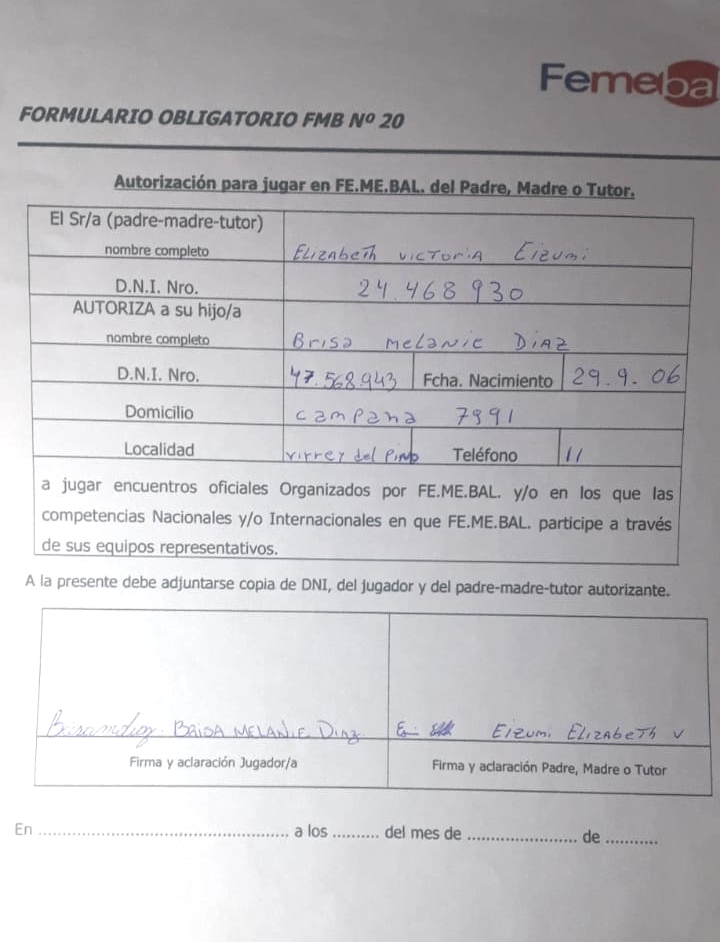 Femebal
FORMULARIO OBLIGATORIO FMB Nº 20
Autorización para jugar en FE.ME.BAL. del Padre, Madre o Tutor.
El Sr/a (padre-madre-tutor)
nombre completo Elizabeth Victoria Eizumi
D.N.I. Nro. 24.468 930
AUTORIZA a su hijo/a
nombre completo Brisa Melanie Diaz
D.N.I. Nro. 47.568.943 Fcha. Nacimiento 29.9.06
Domicilio campana 7991
Localidad virrey del Pino Teléfono 11
a jugar encuentros oficiales Organizados por FE.ME.BAL. y/o en los que las
competencias Nacionales y/o Internacionales en que FE.ME.BAL. participe a través
de sus equipos representativos.
A la presente debe adjuntarse copia de DNI, del jugador y del padre-madre-tutor autorizante.
BRISA MELANIE Diaz Eizumi Elizabeth V
Firma y aclaración Jugador/a Firma y aclaración Padre, Madre o Tutor
En ................................................ a los .......... del mes de ...................... de ...........